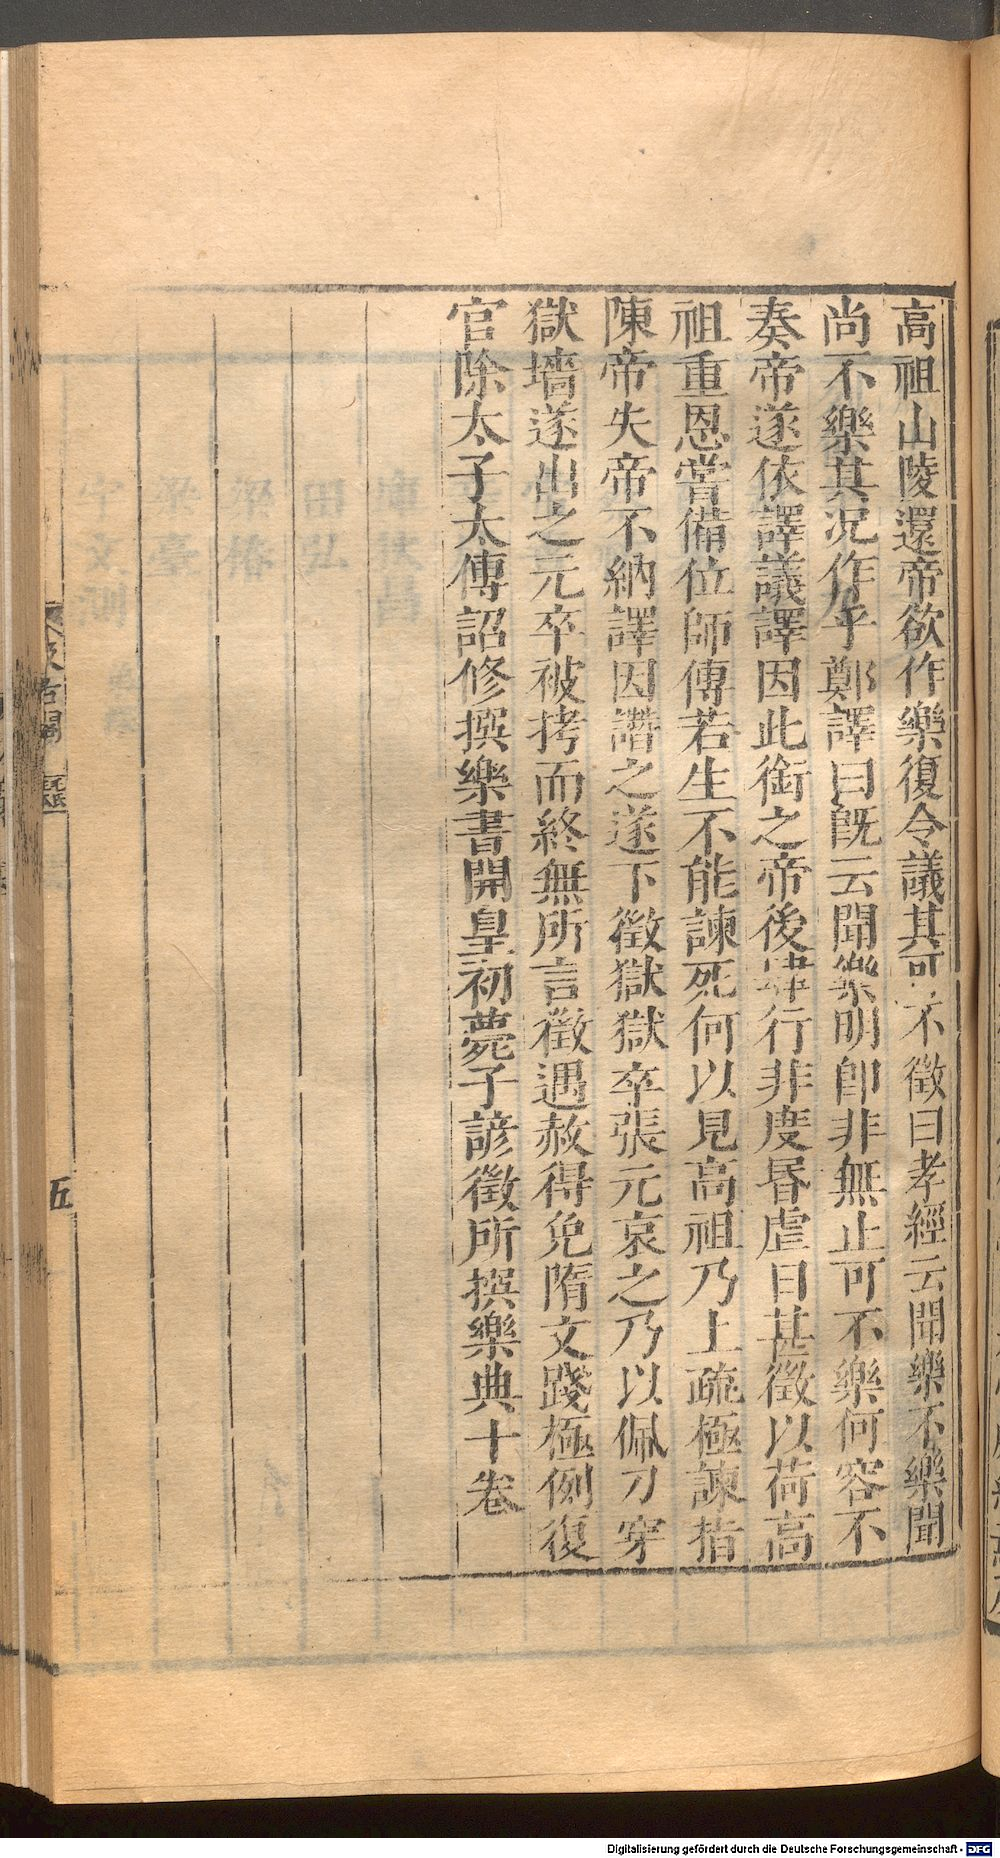 高祖山陵還帝欲作樂復令議其可不徵曰孝經云聞樂不樂聞
尚不樂其況作乎鄭譯曰旣云聞樂明卽非無止可不樂何容不
奏帝遂依譯議譯因此銜之帝後肆行非度昬虐日甚徵以荷高
祖重恩嘗備位師傅若生不能諫死何以見高祖乃上疏極諫指
陳帝失帝不納譯因譖之遂下徵獄獄卒張元哀之乃以佩刀穿
獄墻遂出之元卒被拷而終無所言徵遇赦得免隋文踐極例復
官除太子太傅詔修撰樂書開皇初薨子諺徵所撰樂典十卷
汲古閣
毛氏
五
Digitalisierung gefördert durch die Deutsche Forschungsgemeinschaft - DFG